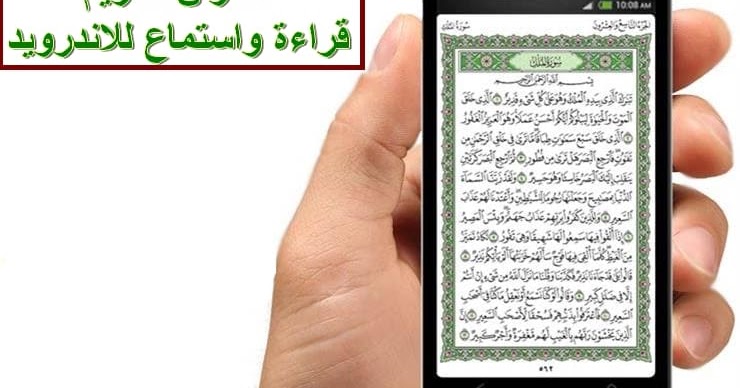 قراءة واستماع للاندرويد
10:08 AM
الجزء التاسع والعشرون سورة الملك
سورة الملك
بسم الله الرحمن الرحيم
تبارك الذي بيده الملك وهو على كل شيء قدير ١ الذي خلق
الموت والحيوة ليبلوكم أيكم أحسن عملا وهو العزيز الغفور
٢ الذي خلق سبع سموات طباقا ما ترى في خلق الرحمن من
تفوت فارجع البصر هل ترى من فطور ٣ ثم ارجع البصر كرتين
ينقلب إليك البصر خاسئا وهو حسير ٤ ولقد زينا السماء
الدنيا بمصبيح وجعلنها رجوما للشيطين وأعتدنا لهم عذاب
السعير ٥ وللذين كفروا بربهم عذاب جهنم وبئس المصير
٦ إذا ألقوا فيها سمعوا لها شهيقا وهي تفور ٧ تكاد تميز
من الغيظ كلما ألقي فيها فوج سألهم خزنتها ألم يأتكم نذير ٨
قالوا بلى قد جاءنا نذير فكذبنا وقلنا ما نزل الله من شيء إن أنتم
إلا في ضلل كبير ٩ وقالوا لو كنا نسمع أو نعقل ما كنا في أصحب
السعير ١٠ فاعترفوا بذنبهم فسحقا لأصحب السعير ١١ إن
الذين يخشون ربهم بالغيب لهم مغفرة وأجر كبير ١٢
٥٦٢